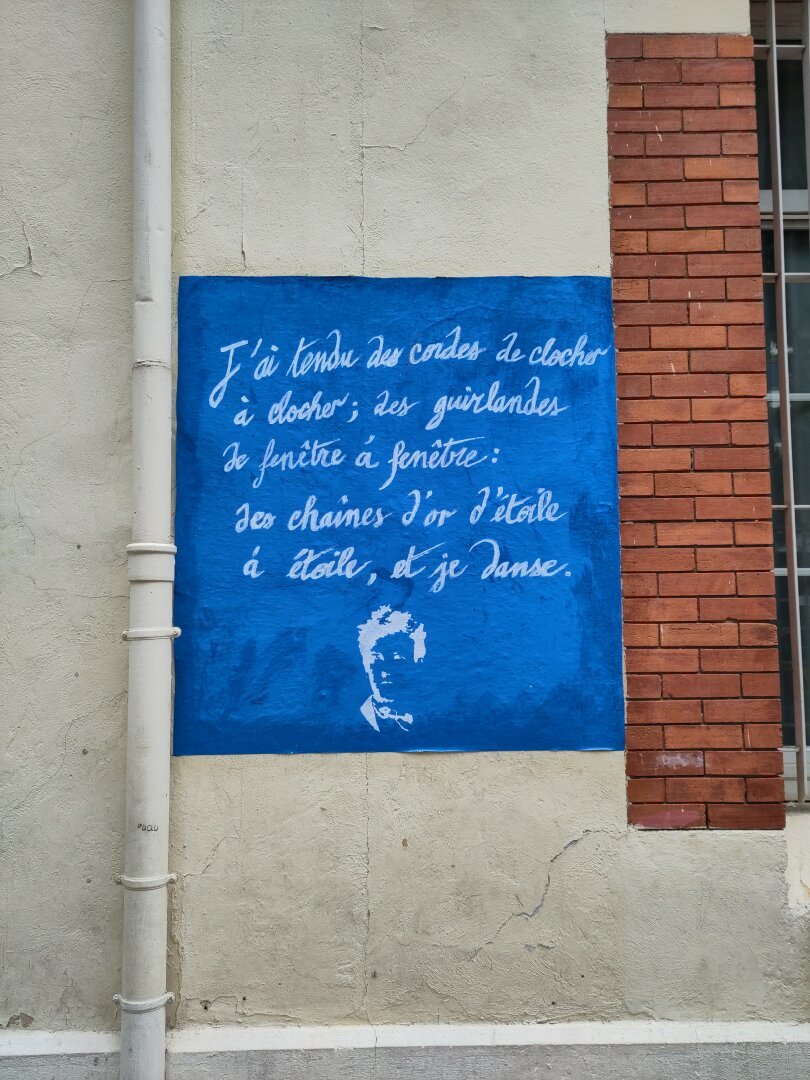 J'ai tendu des cordes de clocher
à clocher; des guirlandes
de fenêtre á fenêtre:
des chaînes d'or d'étoile
á étoile, et je danse.